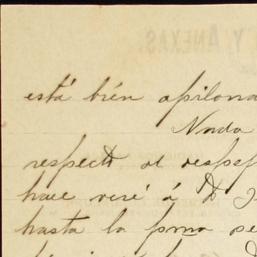 Y ANEXAS.
está bién apilona
Nada
respecto al
hace veré á D
hasta la pma se